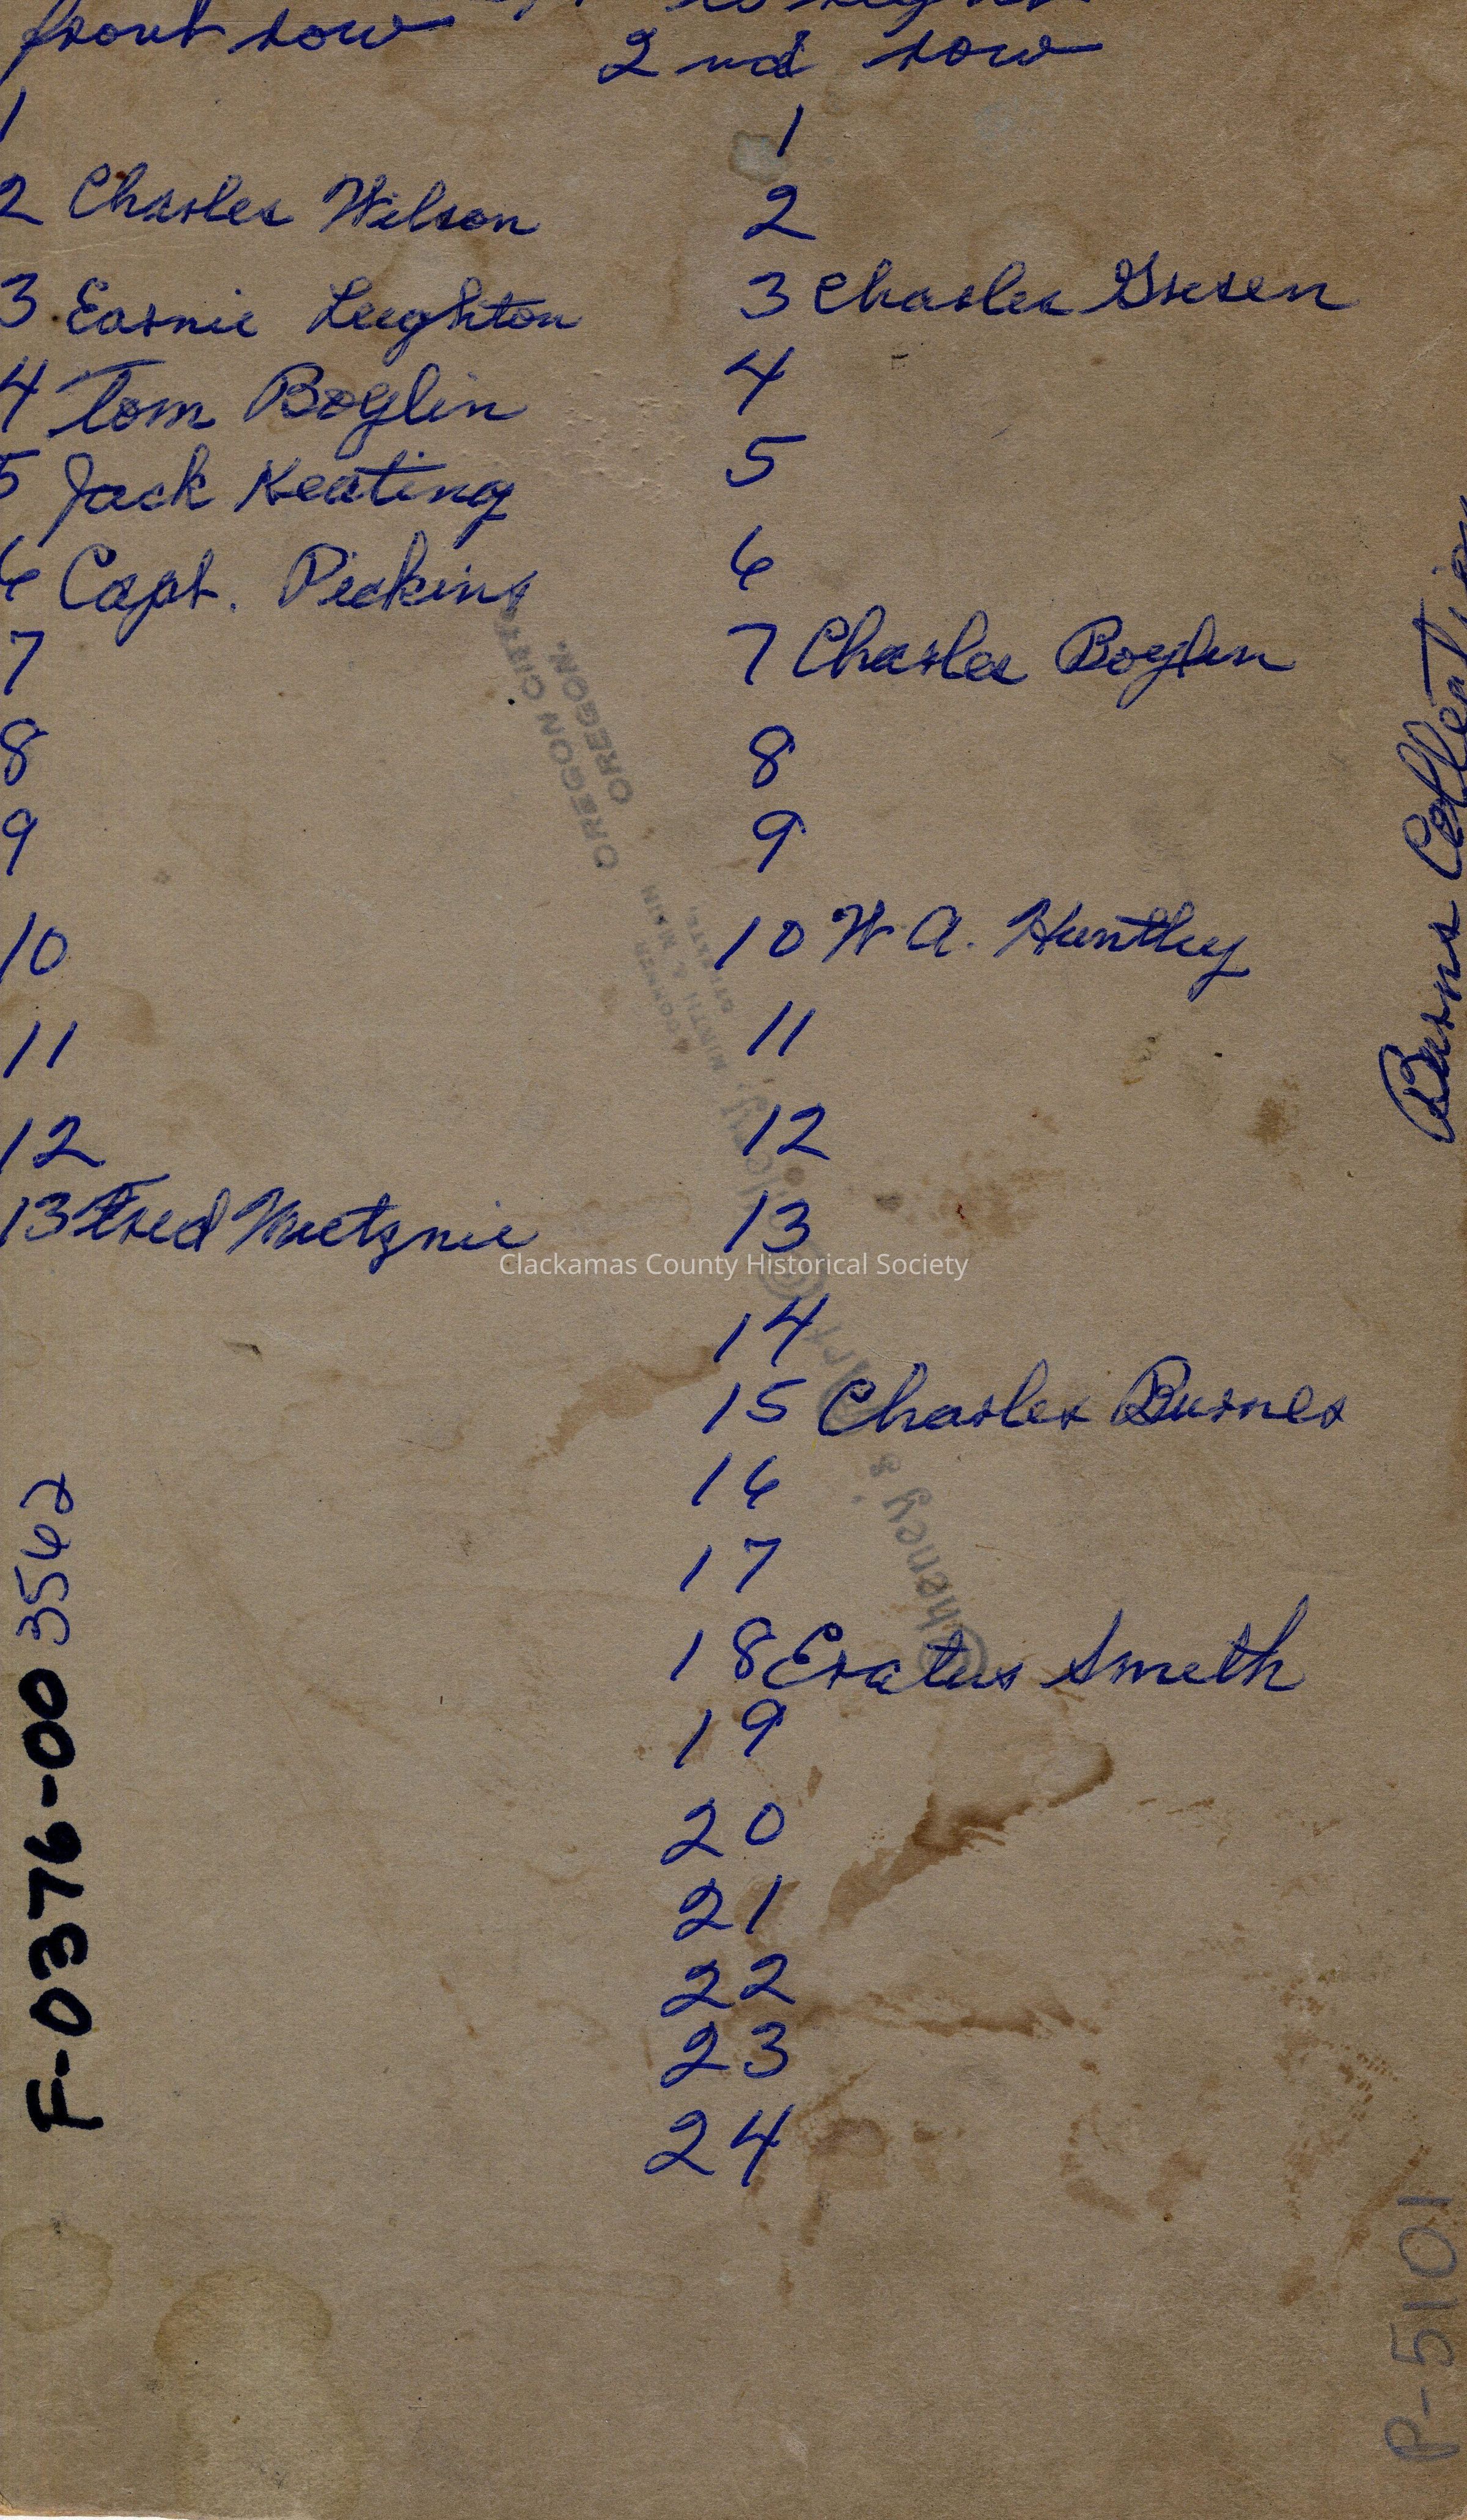 to right
front row
1
2 Charles Wilson
3 Earnie Leighton
4 Tom Boylin
5 Jack Keating
6 Capt. Pickins
7
8
9
10
11
12
13 Fred Metznie
2nd row
1
2
3 Charles Green
4
5
6
7 Charles Boylin
8
9
10 W. A. Huntley
11
12
13
14
15 Charles Burnes
16
17
18 Eratus Smith
19
20
21
22
23
24
Burns Collection
OREGON CITY,
OREGON.
Cheney & Art Gallery,
NINTH & MAIN
STREETS,
Clackamas County Historical Society
F-0376-00 3562
P-5101